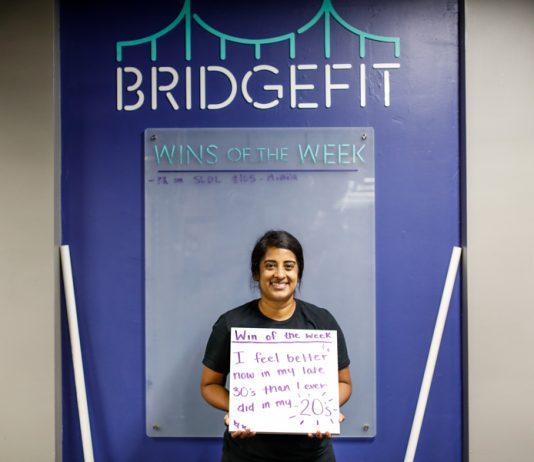 BRIDGEFIT
WINS OF THE WEEK
SLDL
Win of the week
I feel better
now in my late
30's than I ever
did in my 20's